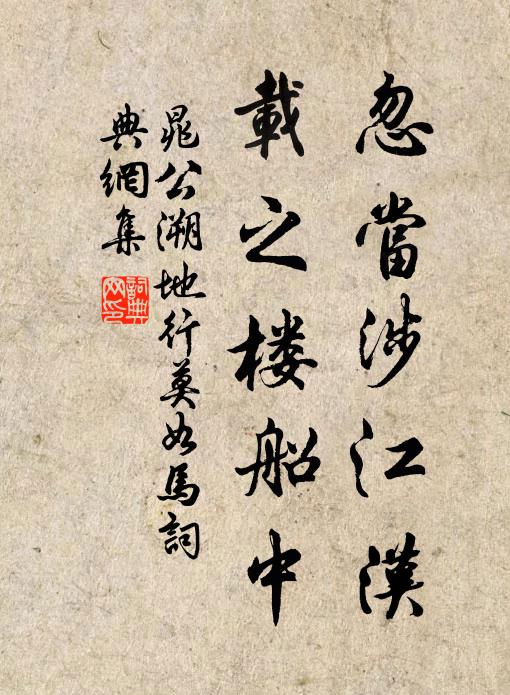 忽當涉江漢
載之楼船中
晁公溯地行莫如馬詞
典網集
詞典网印